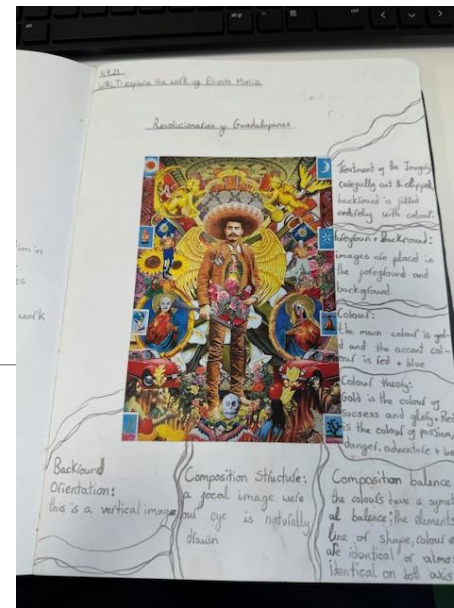 WALT: explore the work of
Revolucionarios y Guadalupanos
ion in
es
work
Treatment of the Imagery
carefully cut & clipped,
backround is filled
entirely with colour.
foregroun + Backround:
images are placed in
the foreground and
background.
Colour:
the main colour is gol-
d and the accent col-
our is red + blue
Colour theory:
Gold is the colour of
sucsess and glory. Red
is the colour of passion,
danger, adventure +
Backround
Orientation:
this is a vertical image
Composition Structure:
a focal image were
our eye is naturally
drawn
Composition balence
the colours have a symet
al balence; the elements
line of shape, colour e
are identical or almos
identical on both axis